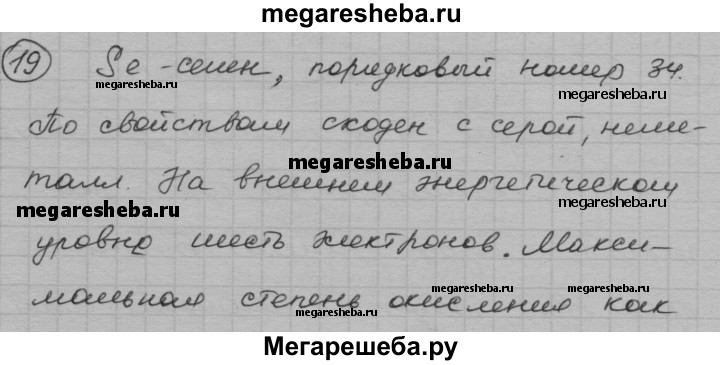 megaresheba.ru
19 Se - селен, порядковый номер 34.
megaresheba.ru megaresheba.ru
По свойствам сходен с серой, неме-
megaresheba.ru
талл. На внешнем энергетическом
megaresheba.ru megaresheba.ru
уровне шесть электронов. Макси-
megaresheba.ru megaresheba.ru
мальная степень окисления как
megaresheba.ru megaresheba.ru
Мегарешеба.ру